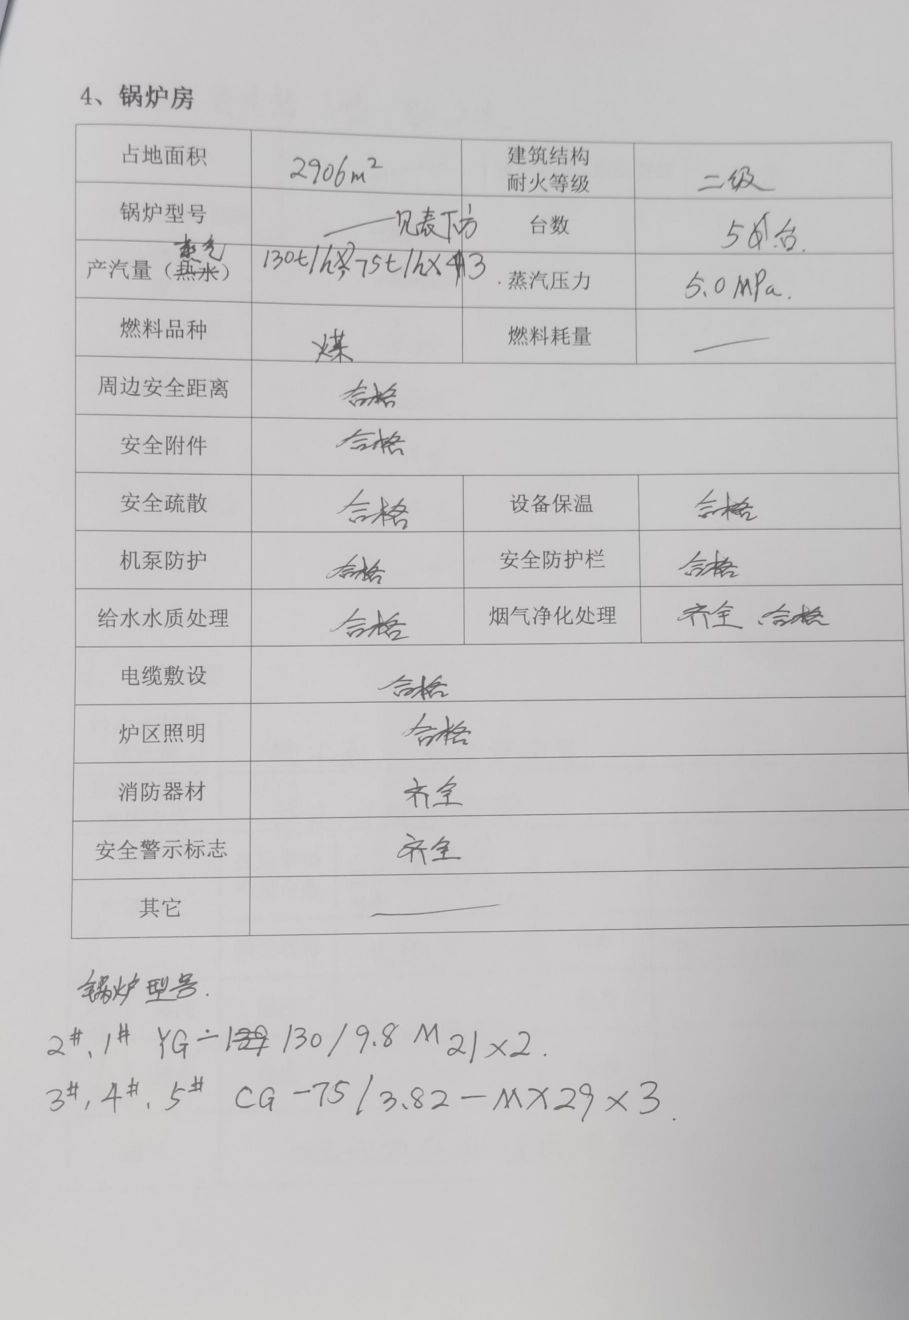 4、锅炉房
占地面积 2906m² 建筑结构耐火等级 二级
锅炉型号 见表下方 台数 5台.
蒸气
产汽量（热水） 130t/h 75t/h×3 蒸汽压力 5.0MPa.
燃料品种 煤 燃料耗量 —
周边安全距离 合格
安全附件 合格
安全疏散 合格 设备保温 合格
机泵防护 合格 安全防护栏 合格
给水水质处理 合格 烟气净化处理 齐全、合格
电缆敷设 合格
炉区照明 合格
消防器材 齐全
安全警示标志 齐全
其它 —
锅炉型号.
2#、1# YG-130/9.8 M21×2.
3#, 4#, 5# CG-75/3.82-MX29×3.